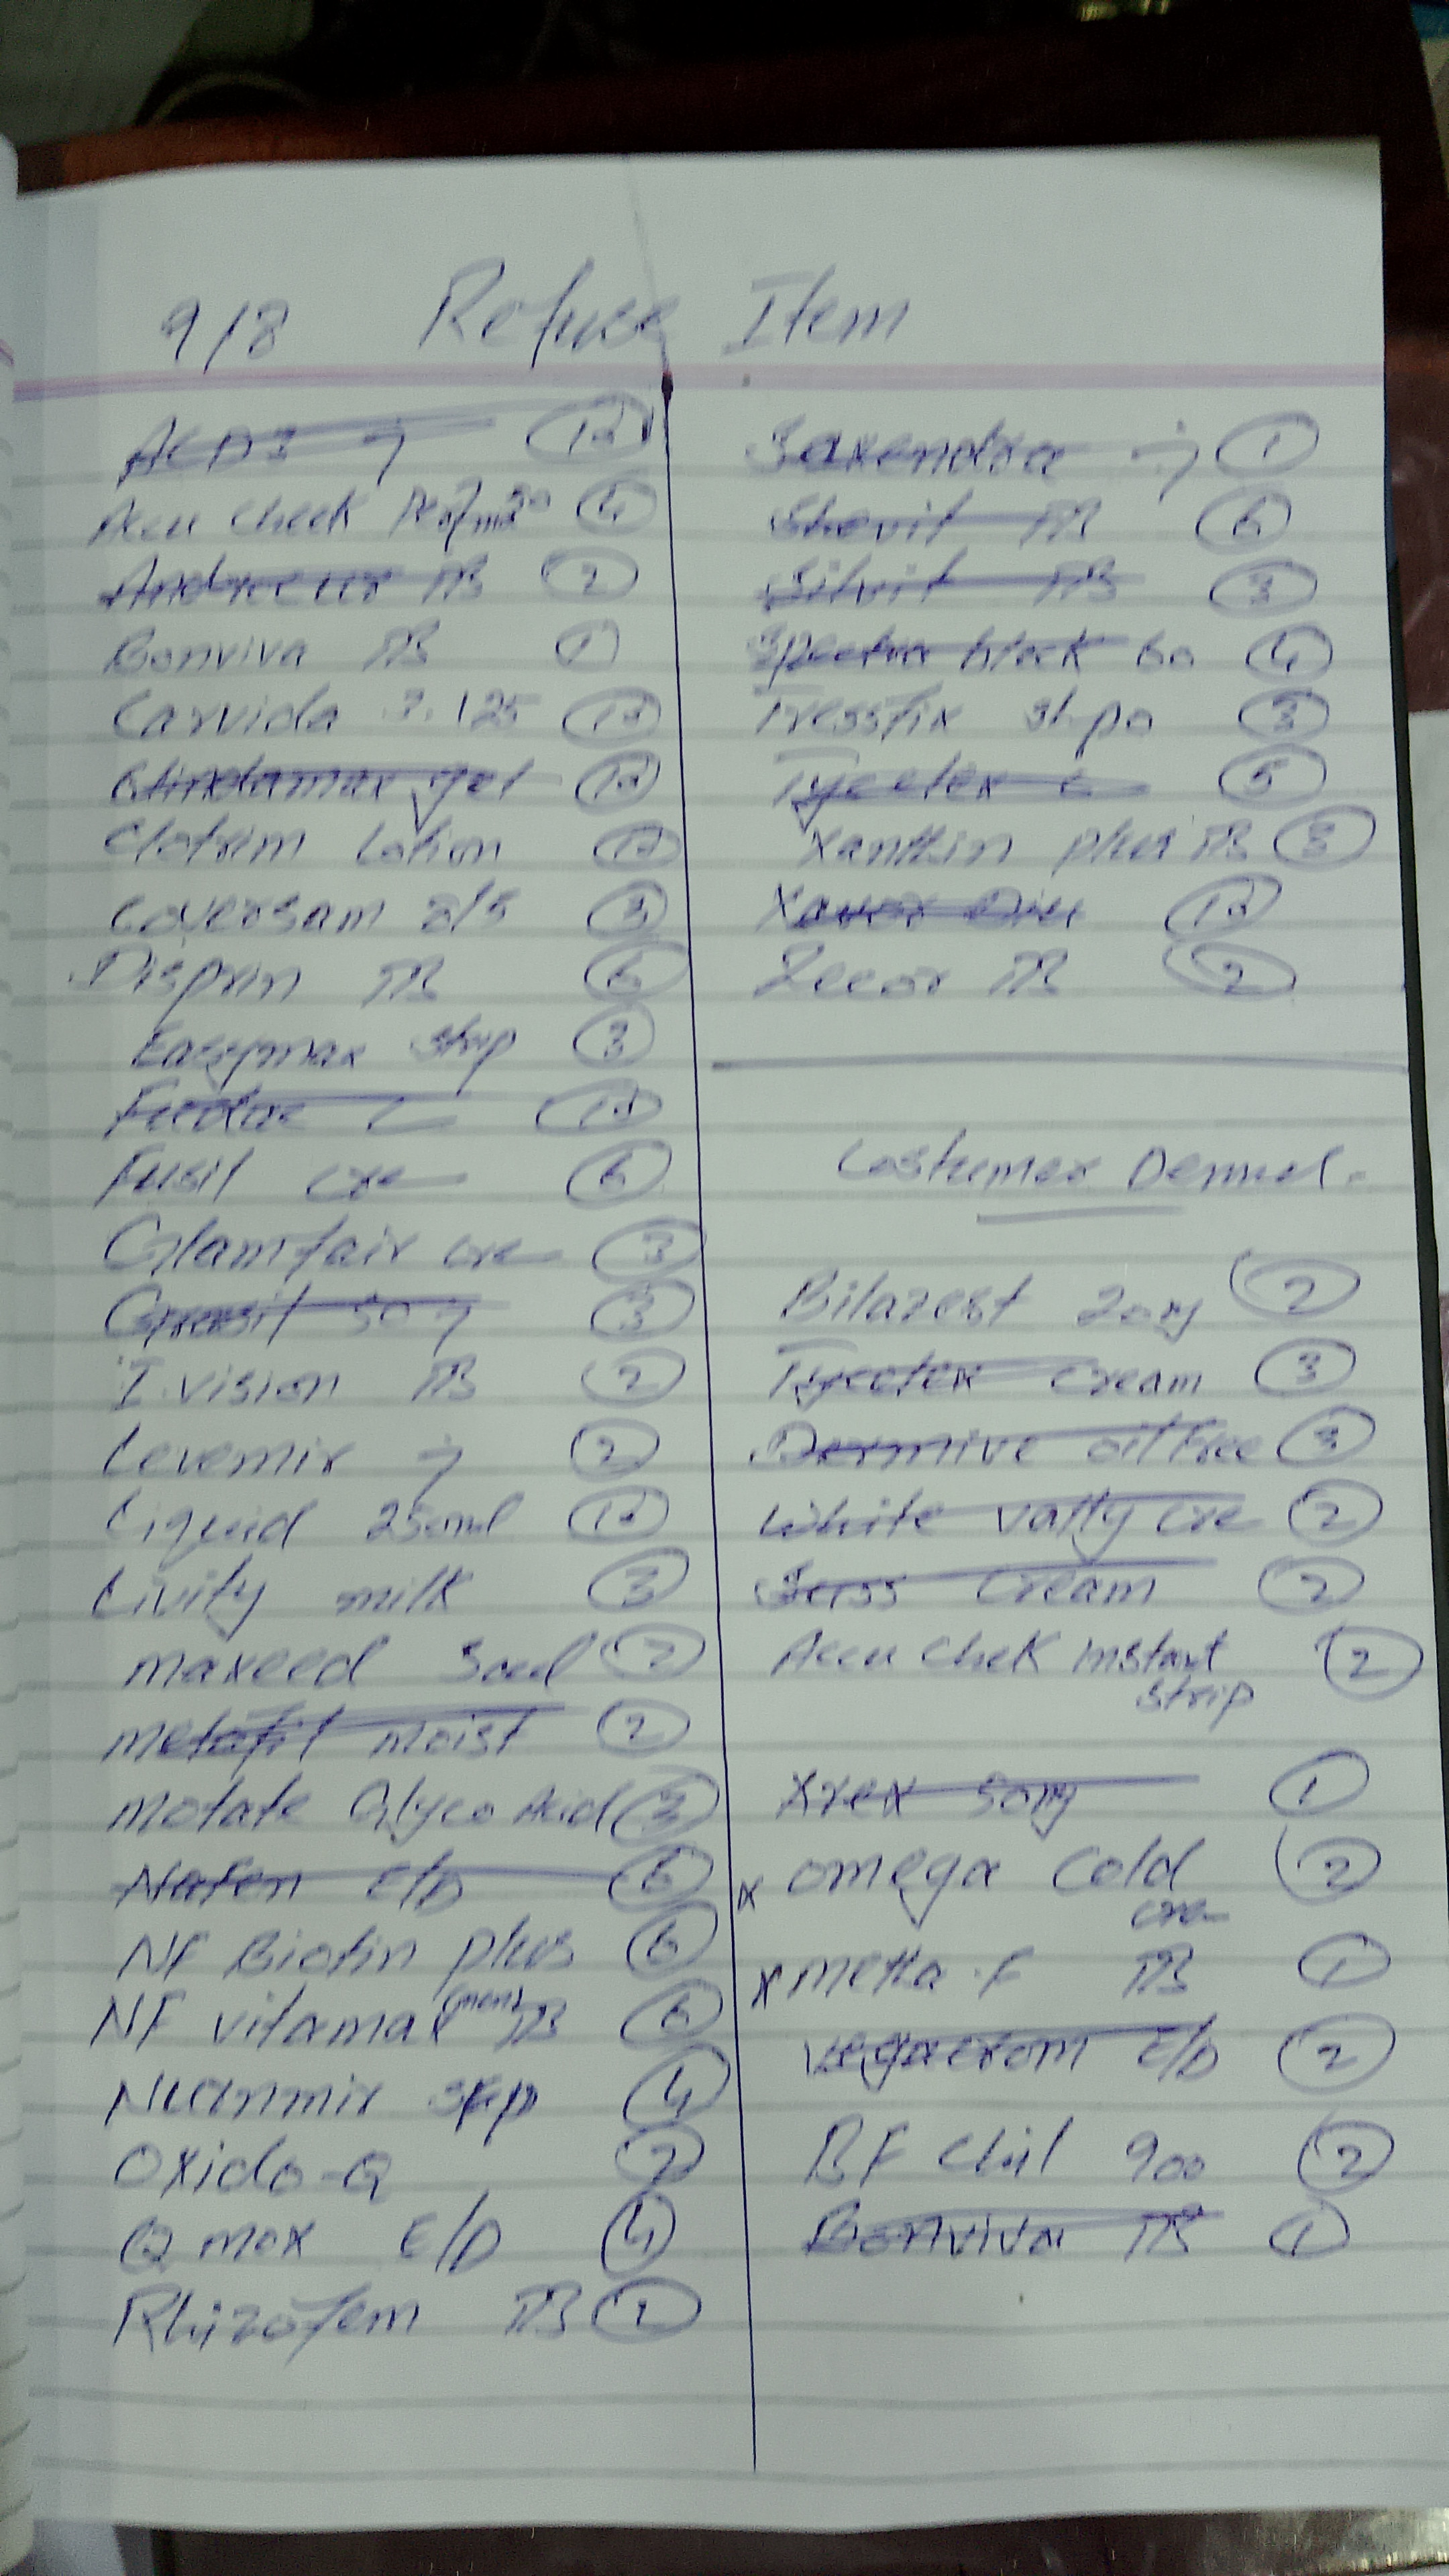 9/8 Refuse Item
inj 12
Accu Check 50 4
TB 2
Bonviva TB 1
Carvida 3.125 12
Clindamax gel 12
Clotrim Lotion 12
Coversam 8/5 3
Disprin TB 6
Easymax strip 3
12
Fusil cre 6
Glamfair cre 3
3
I.vision TB 2
Levemir inj 2
Liquid 250ml 12
Livity milk 3
maxeed Soed 2
moist 2
motate Glyco Acid 3
Nafen E/D 6
NF Biotin plus 6
NF vitamax (men) TB 6
4
Oxido-Q 2
Q mox E/D 4
Rhizofem TB 2
Saxendra inj 1
Shevit TB 6
Silvit TB 3
Spectra block 60 4
Tressfix shpo 3
Tycetex c 5
Xanthin plus TB 3
Xavor 12
Zecor TB 2
Costumer
Bilazest 20mg 2
Tycetex cream 3
Dermive oil Free 3
White vally cre 2
cream 2
Accu Chek instant 2
strip
Xrex 50mg 1
x omega Cold 2
cre
x metta.F TB 1
E/D 2
BF Chil 900 2
Bonviva TB 1